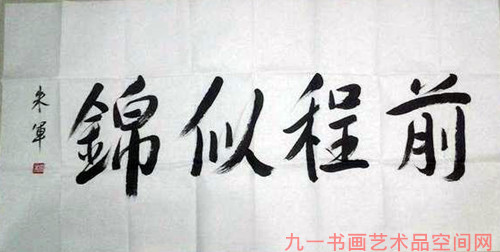 前程似錦
朱軍
九一书画艺术品空间网